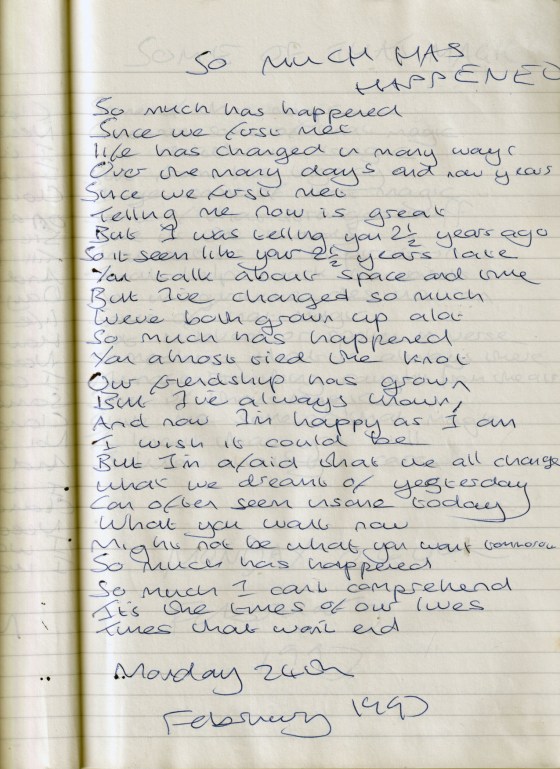 SO MUCH HAS
HAPPENED
So much has happened
Since we first met
life has changed in many ways
Over the many days and now years
Since we first met
Telling me now is great
But I was telling you 2½ years ago
So it seem like your 2½ years late
You talk about space and time
But I've changed so much
We've both grown up alot
So much has happened
You almost tied the knot
Our friendship has grown
But I've always known,
And now I'm happy as I am
I wish it could be
But I'm afaid that we all change
what we dreamt of yesterday
Can often seem insane today
What you want now
Might not be what you want tomorrow
So much has happened
So much I cant comprehend
It's the times of our lives
Times that won't end
Monday 24th
February 1997